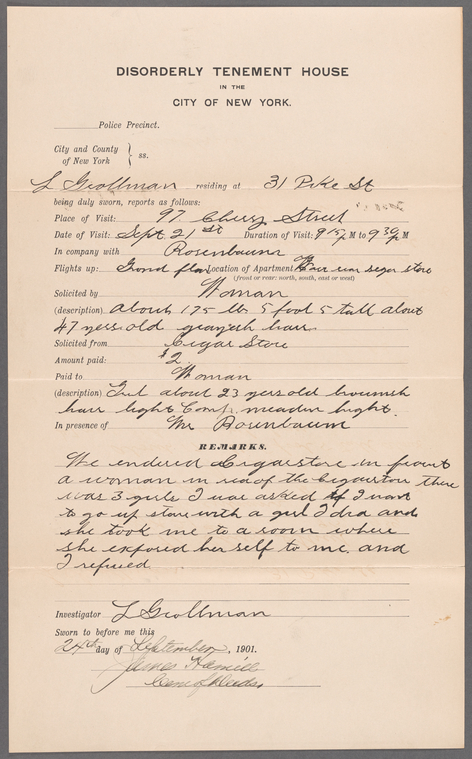 DISORDERLY TENEMENT HOUSE
IN THE
CITY OF NEW YORK.
Police Precinct.
City and County
of New York } ss.
L Grollman residing at 31 Pike St
being duly sworn, reports as follows:
Place of Visit: 97 Cherry Street
Date of Visit: Sept. 21st Duration of Visit: 9 15 P M to 9 30 P M
In company with Rosenbaum
Flights up: Location of Apartment rear segar store
(front or rear: north, south, east or west)
Solicited by Woman
(description) about 175 lb 5 foot 5 tall about
47 yers old grayech hair
Solicited from Cigar Store
Amount paid: $2
Paid to Woman
(description) Girl about 23 yers old brounish
hair light Comp. meaden hight.
In presence of Mr Rosenbaum
REMARKS.
We endered Cigarstore in fraunt
a woman in rea of the Cigarstore there
was 3 girls I was asked if I want
to go up stare with a girl I did and
she took me to a room where
she exposed her self to me and
I refused
Investigator L Grollman
Sworn to before me this
24th day of September, 1901.
James Hamill
Com of Deeds.